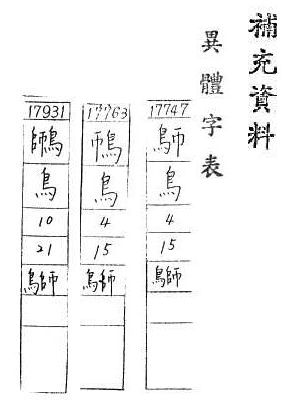 補充資料
異體字表
17747
鳥
4
15
17763
鳾
鳥
4
15
17931
鶳
鳥
10
21